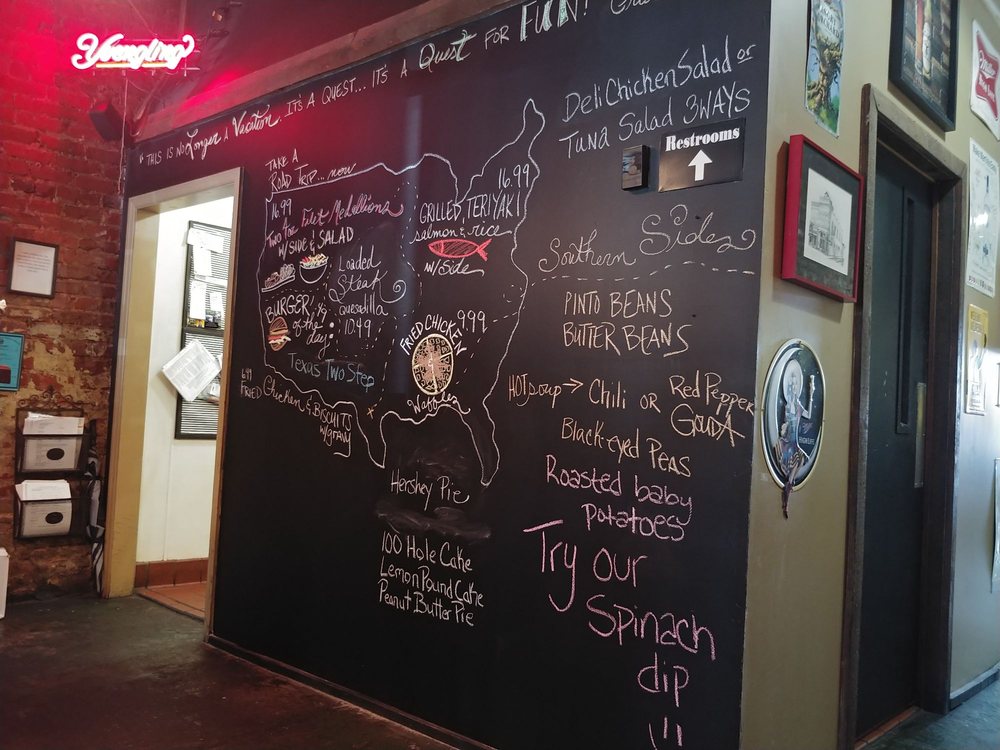 Yuengling
"THIS IS NO Longer A Vacation. IT'S A QUEST... IT'S A Quest FOR FUN!
Deli Chicken Salad or
Tuna Salad 3WAYS
Restrooms
TAKE A
ROAD TRIP... now
16.99
Two 7oz Filet Medallions
W/SIDE & SALAD
16.99
GRILLED TERIYAKI
salmon & rice
w/Side
Loaded
Steak
quesadilla
10.49
BURGER
of the
day
Texas Two Step
FRIED CHICKEN 9.99
Waffles
6.99
FRIED Chicken & BISCUITS
w/gravy
Hershey Pie
100 Hole Cake
Lemon Pound Cake
Peanut Butter Pie
Southern Sides
PINTO BEANS
BUTTER BEANS
HOT soup → Chili OR Red Pepper
GOUDA
Black-eyed Peas
Roasted baby
potatoes
Try our
Spinach
dip